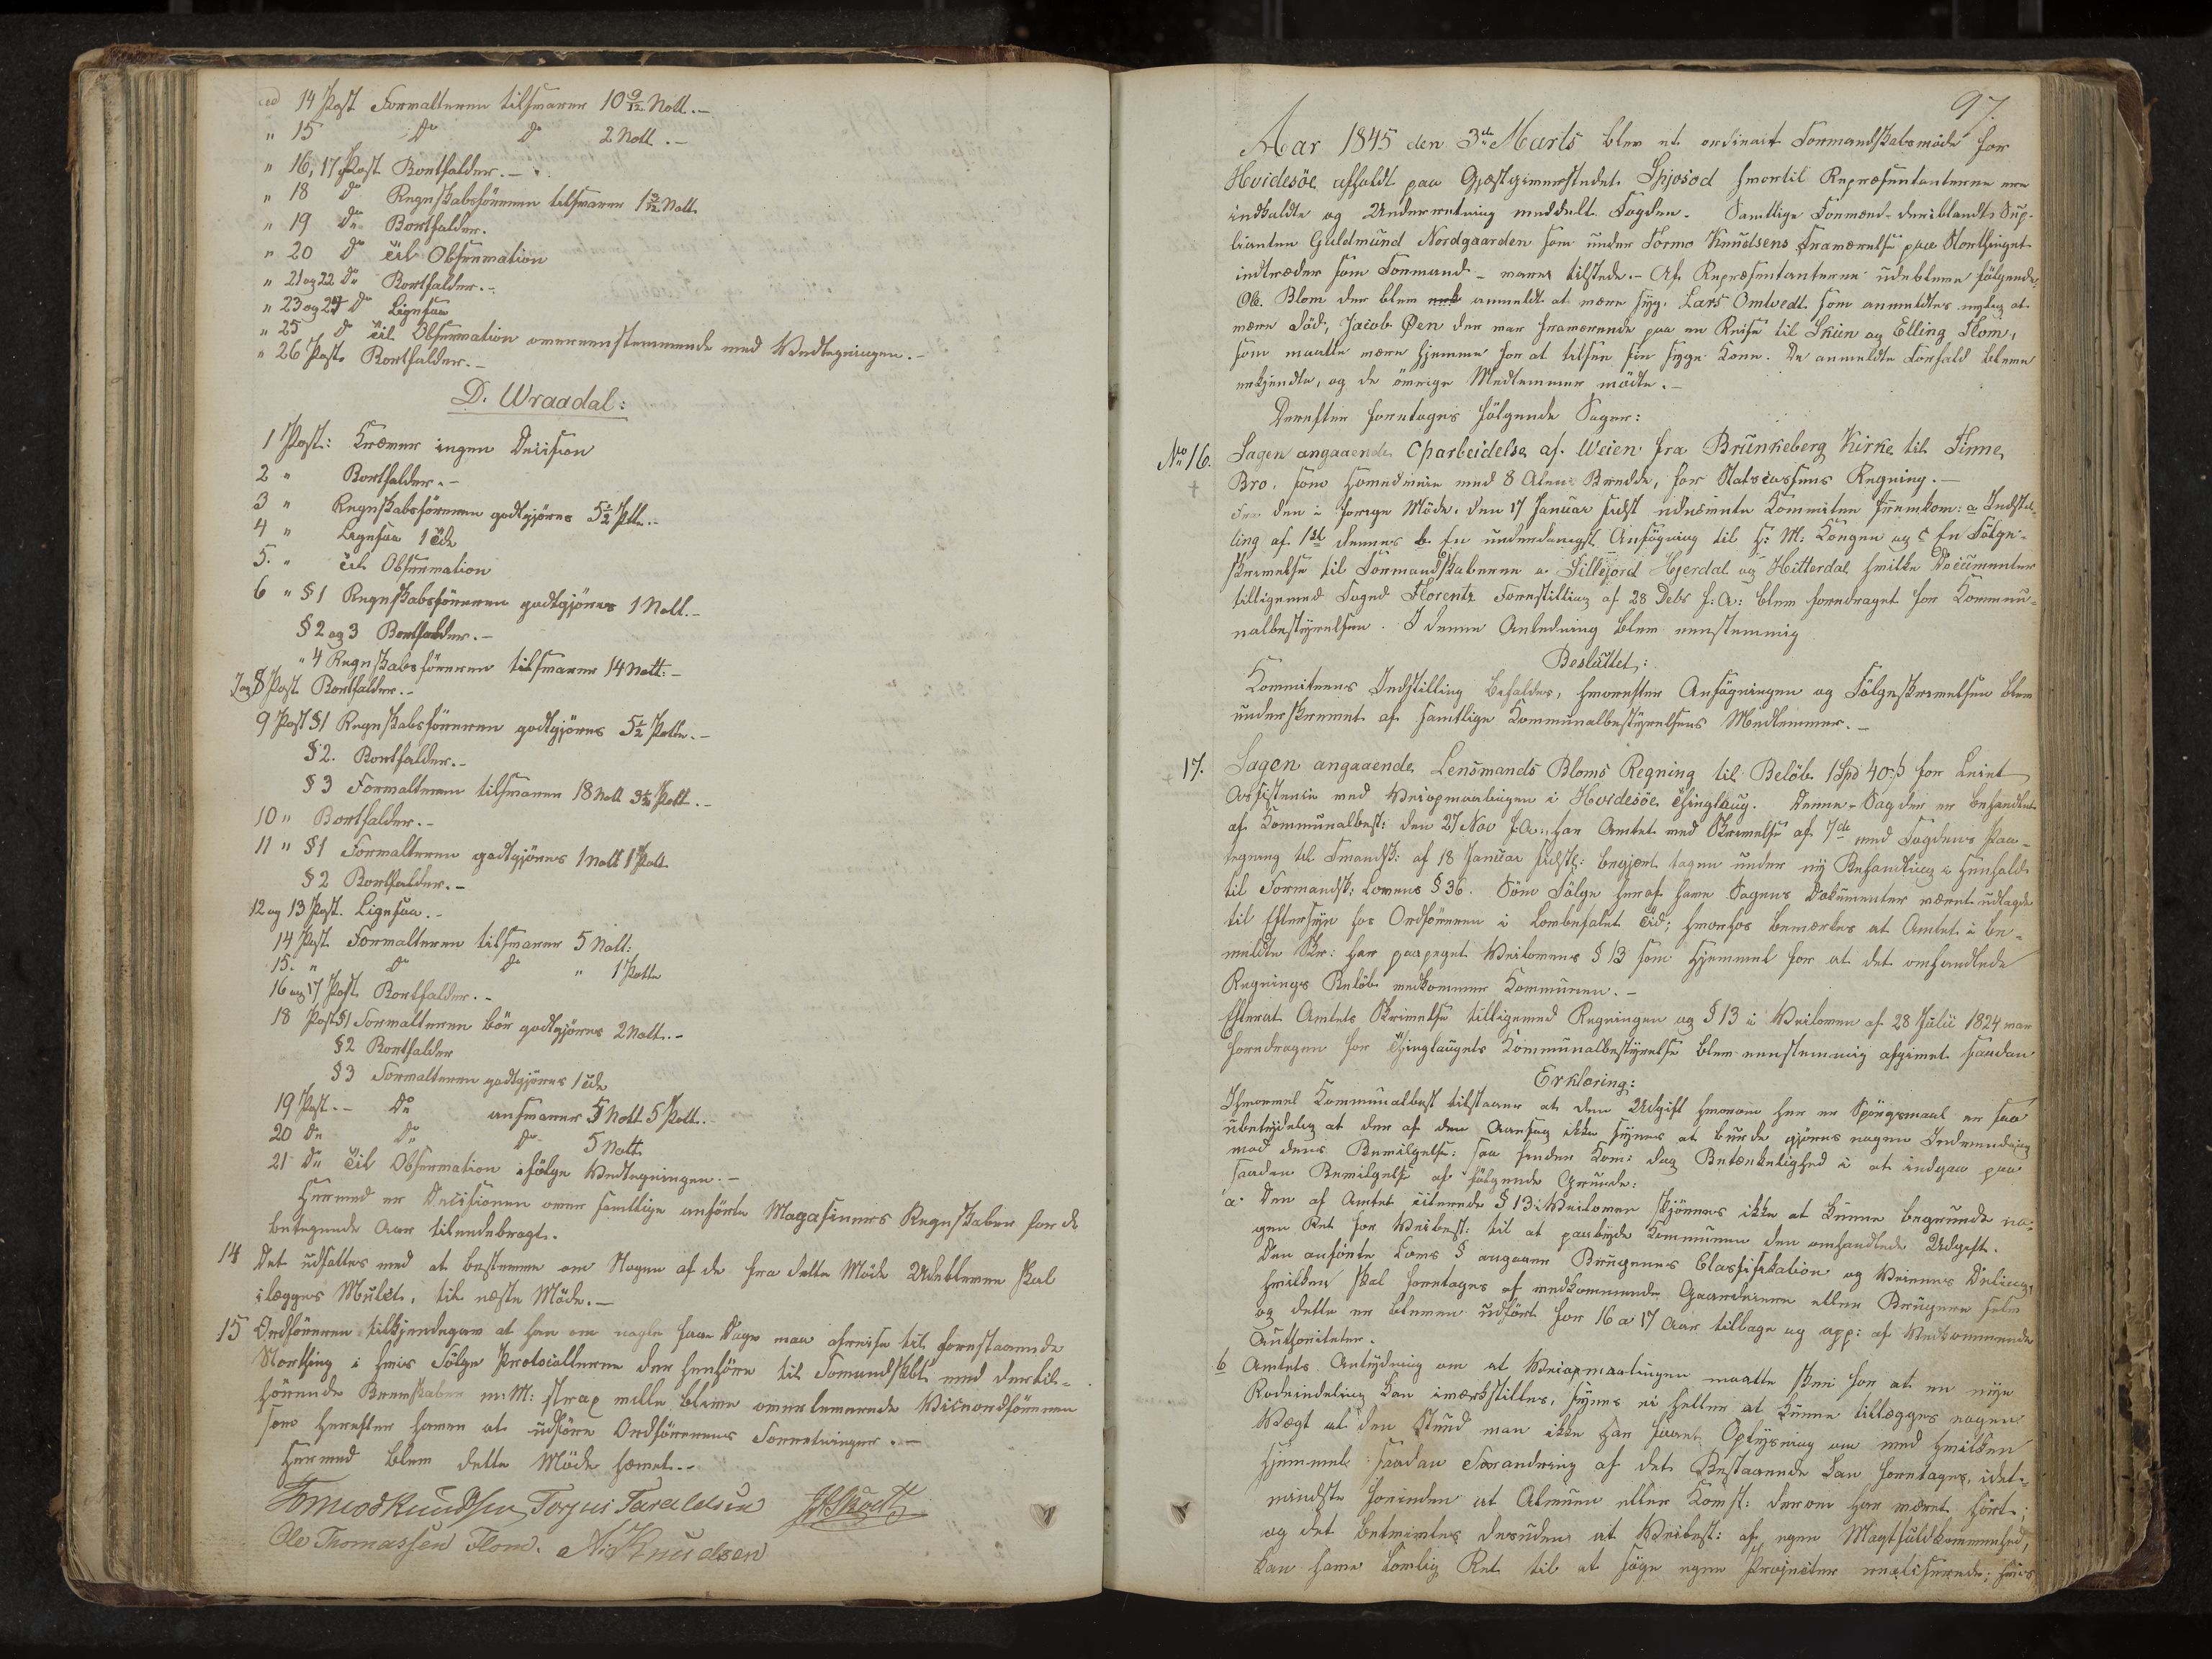 ad 14 Post Forvalteren tilsvarer 10 9/12 Vott.-
" 15 Do Do 2 Vott.-
" 16, 17 Post Bortfalder.-
" 18 Do Regnskabsføreren tilsvarer Vott
" 19 Do Bortfalder.
" 20 Do til Observation
" 21 og 22 Do Bortfalder.-
" 23 og 24 Do Ligesaa
" 25 Do til Observation overeenstemmende med Vedtegningen.-
" 26 Post Bortfalder.-
D. Wraadal:
1 Post: Kræver ingen Decision
2 " Bortfalder.-
3 " Regnskabsføreren godtgjøres 5½ Potte.-
4 " Ligesaa 1 Td
5. " til Observation
6 " § 1 Regnskabsføreren godtgjøres 1 Vott.-
§ 2 og 3 Bortfalder.-
" 4 Regnskabsføreren tilsvarer 14 Vott.-
7 og 8 Post Bortfalder.-
9 Post § 1 Regnskabsføreren godtgjøres 5½ Potte.-
§ 2. Bortfalder.-
§ 3 Forvalteren tilsvarer 18 Vott 3½ Pott.-
10 " Bortfalder.-
11 " § 1 Forvalteren godtgjøres 1 Vott 1 Pott
§ 2 Bortfalder.-
12 og 13 Post. Ligesaa.-
14 Post Forvalteren tilsvarer 5 Vott:
15. " Do Do " 1 Potte
16 og 17 Post Bortfalder.-
18 Post § 1 Forvalteren bør godtgjøres 2 Vott.-
§ 2 Bortfalder
§ 3 Forvalteren godtgjøres 1 Td
19 Post.- Do ansvarer 5 Vott 5 Pott.-
20 Do Do Do 5 Vott
21 Do til Observation ifølge Vedtegningen.-
Hermed er Decisionen over samtlige anførte Magasiners Regnskaber for de
betegnede Aar tilendebragt.
14 Det udsattes med at bestemme om Nogen af de fra dette Møde Udeblevne skal
ilægges Mulct, til næste Møde.-
15 Ordføreren tilkjendegav at han om nogle faae Dage maa afreise til forestaaende
Storthing i hvis Følge Protocollerne der henhøre til Formandskbt med dertil-
hørende Brevskaber m: M: strax ville blive overleverede Viceordføreren
som herefter haver at udføre Ordførerens Forretninger.-
Hermed blev dette Møde hævet.-
Tormod Knudsen Torjus Taraldsen
Ole Thomassen Flom. Knudsen
97.
Aar 1845 den 3de Marts blev et ordinært Formandskabsmøde for
Hvidesøe afholdt paa Gjæstgiverstedet Spjosod hvortil Repræsentanterne ere
indkaldte og Underretning meddelt Fogden. Samtlige Formænd - deriblandt Sup-
lianten Guldmund Nordgaarden som under Tormo Knudsens Fraværelse paa Storthinget
indtræder som Formand - vare tilstede.- Af Repræsentanterne udebleve følgende:
Ole Blom der blev anmeldt at være syg, Lars Omtvedt som anmeldtes nylig at
være død, Jacob Øen der var fraværende paa en Reise til Skien og Elling Flom,
som maatte være hjemme for at tilsee sin syge Kone. De anmeldte Forfald bleve
erkjendte, og de øvrige Medlemmer mødte.-
Derefter foretoges følgende Sager:
No 16. Sagen angaaende Oparbeidelse af Veien fra Brunkeberg Kirke til Sinne
Bro, som Hovedveie med 8 Alens Bredde, for Statscassens Regning.-
Fra den i forrige Møde, den 17 Januar sidst udnævnte Kommitee fremkom: a Indstil-
ling af 1st dennes b En underdanigst Ansøgning til H: M: Kongen og c En Følge-
skrivelse til Formandskaberne i Sillejord Hjerdal og Hitterdal hvilke Documenter
tilligemed Foged Florentz Forestilling af 28 Debr f: A: blev foredraget for Kommu-
nalbestyrelsen. I denne Anledning blev eenstemmig
Besluttet:
Kommiteens Indstilling bifaldes, hvorefter Ansøgningen og Følgeskrivelsen blev
underskrevet af samtlige Kommunalbestyrelsens Medlemmer.-
17. Sagen angaaende Lensmands Bloms Regning til Beløb 1 Spd 40 ß for Leiet
Assistence ved Veiopmaalingen i Hvidesøe Thinglaug. Denne Sag der er behandlet
af Kommunalbest: den 27 Nov f. A:, har Amtet med Skrivelse af 7de med Fogdens Paa-
tegning til Fmandsk: af 18 Januar sidstl: begjært tagen under ny Behandling i Henhold
til Formandsk: Lovens § 36. Som Følge heraf have Sagens Dokumenter været udlagde
til Eftersyn hos Ordføreren i lovbefalet Tid; hvorhos bemærkes at Amtet i be-
meldte Skr: har paapeget Veilovens § 13 som Hjemmel for at det omhandlede
Regnings Beløb vedkommer Kommunen.-
Efterat Amtets Skrivelse tilligemed Regningen og § 13 i Veiloven af 28 Julii 1824 var
foredragen for Thinglaugets Kommunalbestyrelse blev eenstemmig afgivet saadan
Erklæring:
Ihvorvel Kommunalbest tilstaaer at den Udgift hvorom her er Spørgsmaal er saa
ubetydelig at der af den Aarsag ikke synes at burde gjøres nogen Indvending
mod dens Bevilgelse: saa finder Kom: dog Betænkelighed i at indgaae paa
saadan Bevilgelse af følgende Grunde:
a. Den af Amtet citerede § 13 i Veiloven skjønnes ikke at kunne begrunde no-
gen Ret for Veibest: til at paabyde Kommunen den omhandlede Udgift.
Den anførte Lovs § angaaer Brugenes Classifikation og Veienes Deling,
hvilken skal foretages af vedkommende Gaardeiere eller Brugere selv
og dette er bleven udført for 16 a 17 Aar tilbage og app: af Vedkommende
Authoriteter.
b Amtets Antydning om at Veiopmaalingen maatte skee for at en nye
Rodeindeling kan iværkstilles, synes ei heller at kunne tillægges nogen
Vægt al den Stund man ikke har faaet Oplysning om med hvilken
Hjemmel saadan Forandring af det Bestaaende kan foretages, idet-
mindste forinden at Almuen eller Komst: derom har været hørt;
og det betvivles desuden at Veibest: af egen Magtfuldkommenhed,
kan have lovlig Ret til at søge egne Projecter realiserede, hvis